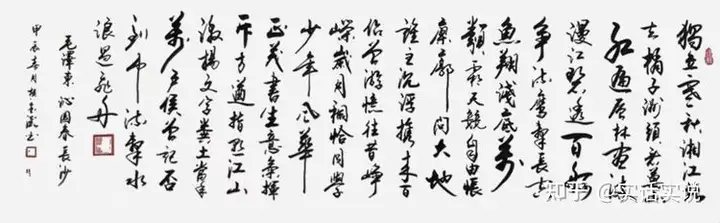 獨立寒秋湘江北
去橘子洲頭看萬山
紅遍層林盡染
漫江碧透百舸
爭流鷹擊長空
魚翔淺底萬
類霜天競自由悵
寥廓問大地
誰主沉浮攜來百
侶曾游憶往昔崢
嶸歲月稠恰同學
少年風華
正茂書生意氣揮
斥方遒指點江山
激揚文字糞土當年
萬户侯曾記否
到中流擊水
浪遏飛舟
毛澤東 沁園春 長沙
甲辰春月
知乎 @实话实说